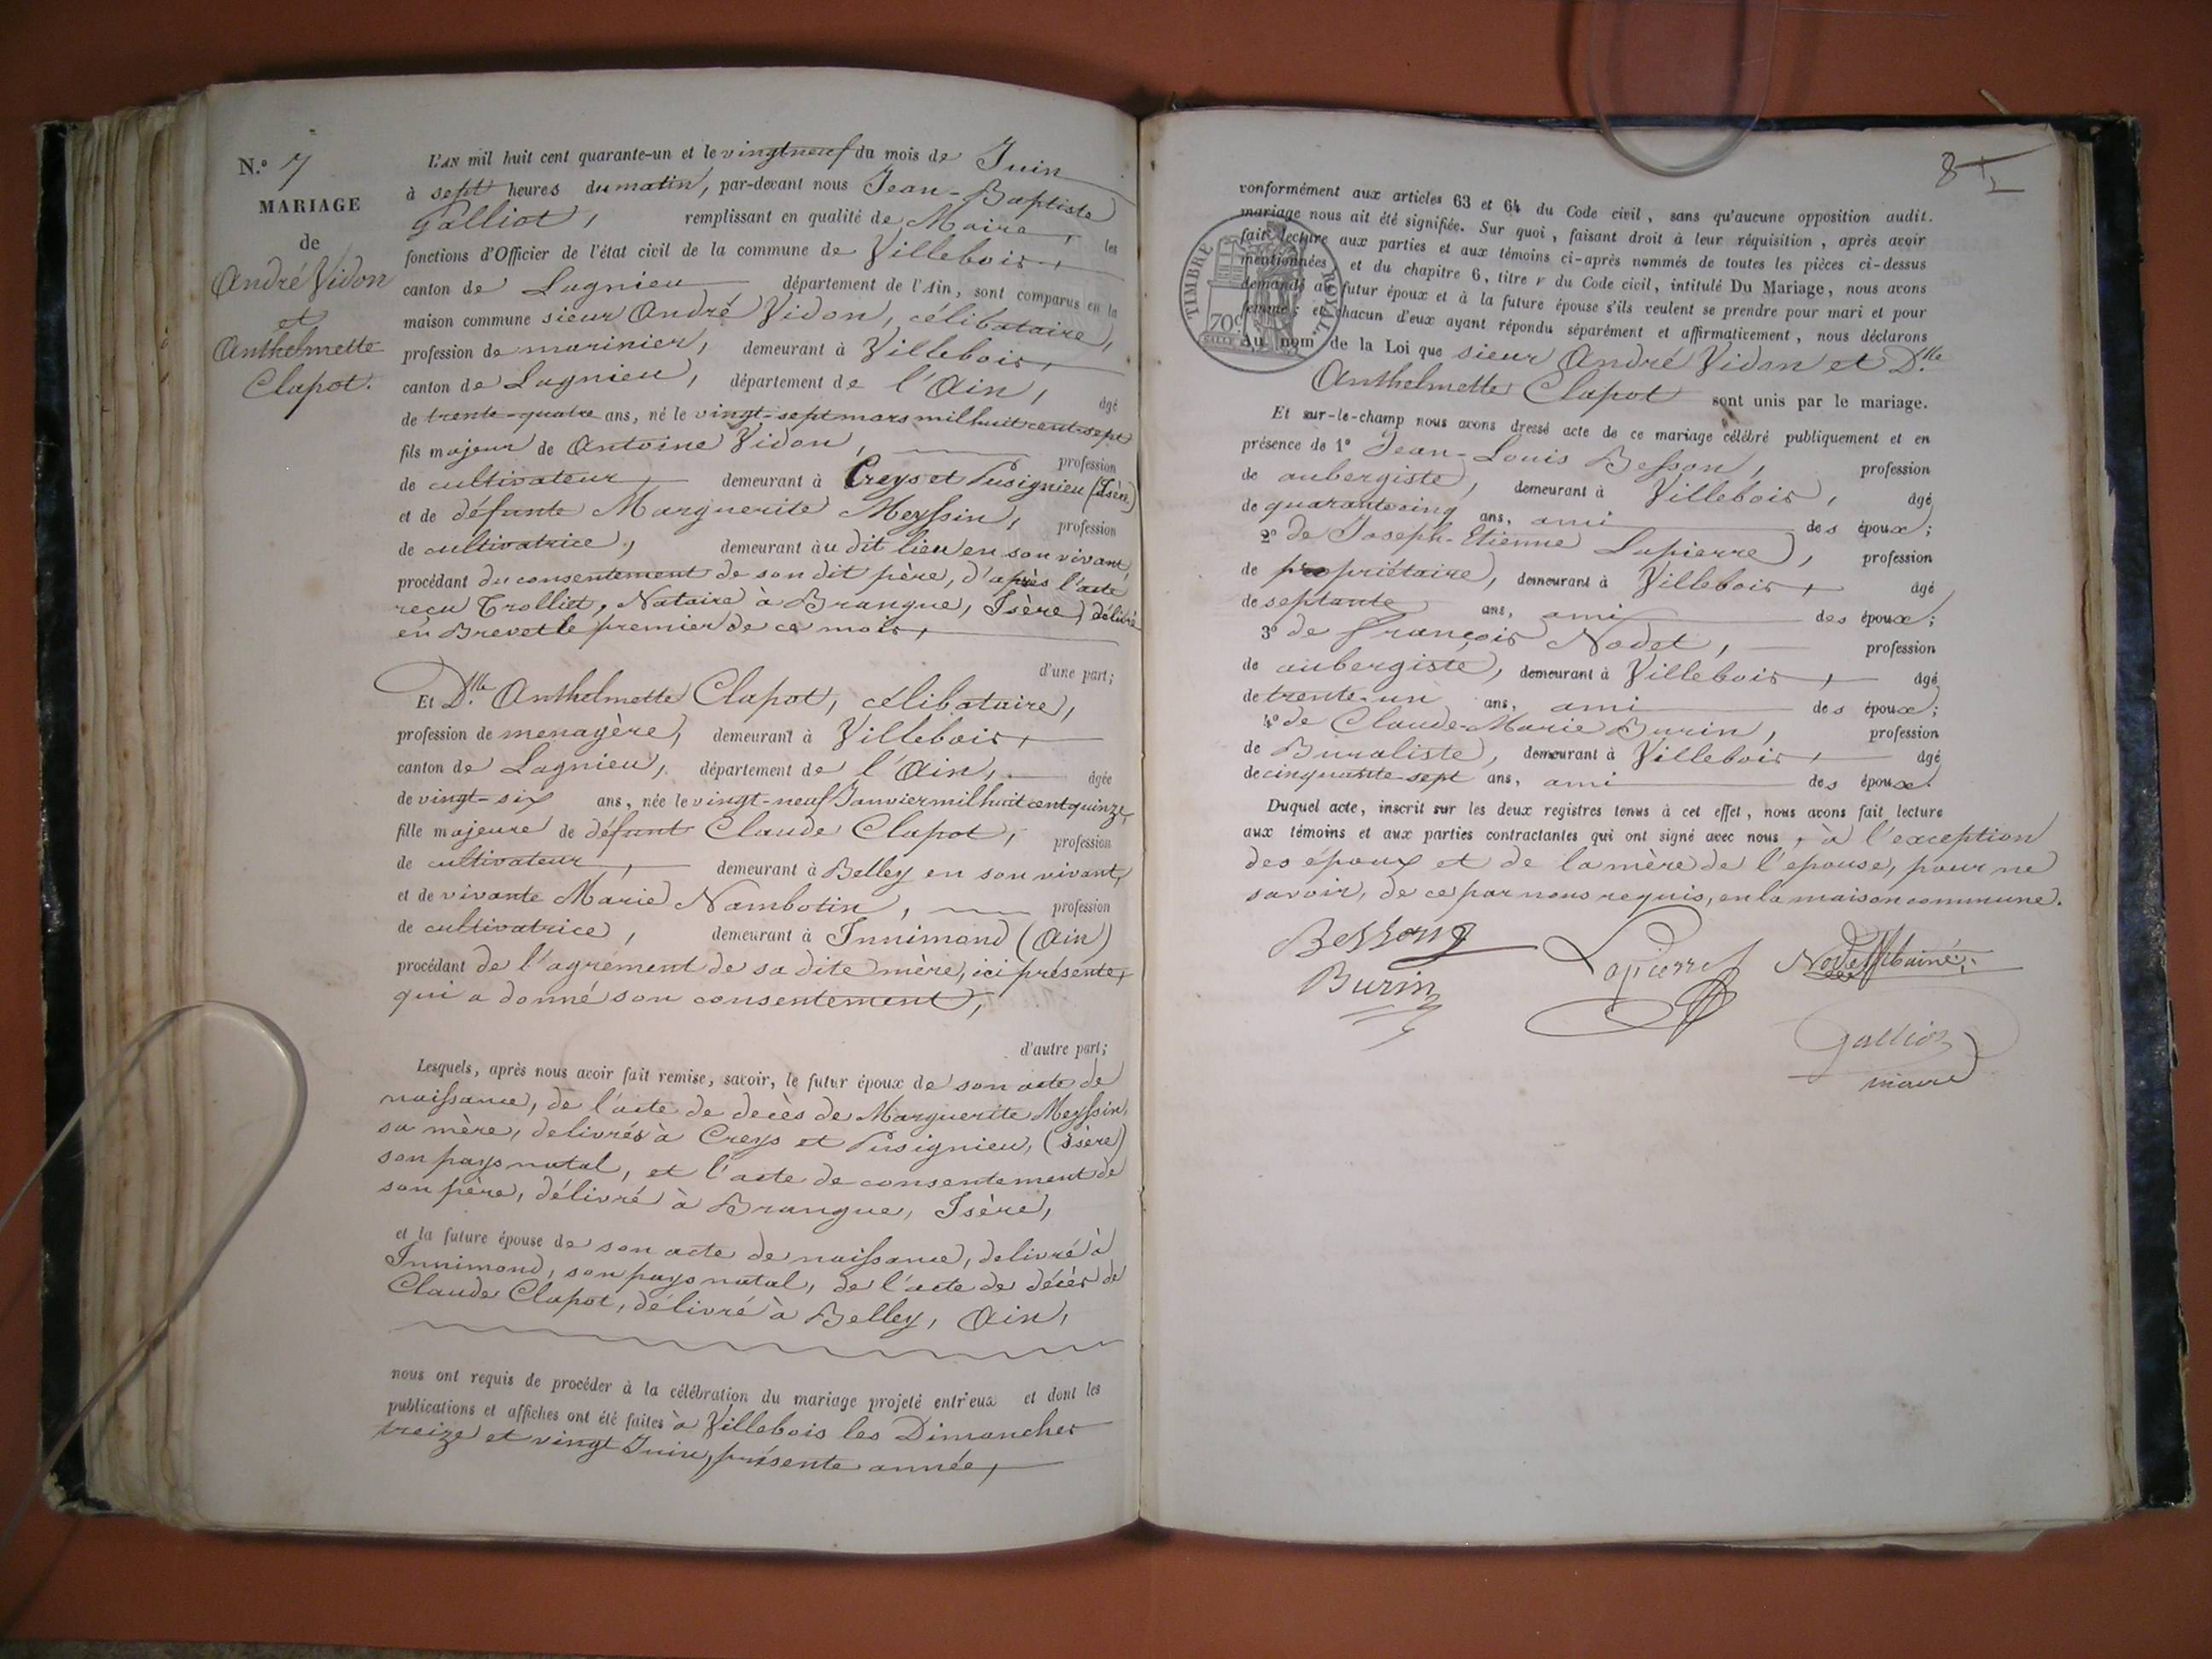 N.° 7
MARIAGE
de
André Vidon
et
Anthelmette
Clapot.
L'AN mil huit cent quarante-un et le vingt neuf du mois de Juin
à sept heures du matin, par-devant nous Jean-Baptiste
Galliot, remplissant en qualité de Maire, les
fonctions d'Officier de l'état civil de la commune de Villebois,
canton de Lagnieu département de l'Ain, sont comparus en la
maison commune sieur André Vidon, célibataire,
profession de marinier, demeurant à Villebois,
canton de Lagnieu, département de l'Ain, âgé
de trente-quatre ans, né le vingt-sept mars mil huit cent sept
fils majeur de Antoine Vidon, profession
de cultivateur, demeurant à Creys et Pusignieu (Isèr.)
et de défunte Marguerite Meyssin, profession
de cultivatrice, demeurant au dit lieu en son vivant,
procédant du consentement de son dit père, d'après l'acte
reçu Trolliet, Notaire à Brangue, Isère, délivré
en Brevet le premier de ce mois,
d'une part;
Et D.lle Anthelmette Clapot, célibataire,
profession de menagère, demeurant à Villebois,
canton de Lagnieu, département de l'Ain, âgée
de vingt-six ans, née le vingt-neuf Janvier mil huit cent quinze,
fille majeure de défunt Claude Clapot, profession
de cultivateur, demeurant à Belley en son vivant,
et de vivante Marie Nambotin, profession
de cultivatrice, demeurant à Innimond (Ain)
procédant de l'agrément de sa dite mère, ici présente,
qui a donné son consentement,
d'autre part;
Lesquels, après nous avoir fait remise, savoir, le futur époux de son acte de
naissance, de l'acte de decès de Marguerite Meyssin,
sa mère, delivrés à Creys et Pusignieu, (Isère)
son pays natal, et l'acte de consentement de
son père, délivré à Brangue, Isère,
et la future épouse de son acte de naissance, delivré à
Innimond, son pays natal, de l'acte de décès de
Claude Clapot, délivré à Belley, Ain,
nous ont requis de procéder à la célébration du mariage projeté entr'eux et dont les
publications et affiches ont été faites à Villebois les Dimanches
treize et vingt Juin, présente année,
8
conformément aux articles 63 et 64 du Code civil, sans qu'aucune opposition audit.
mariage nous ait été signifiée. Sur quoi, faisant droit à leur réquisition, après avoir
fait lecture aux parties et aux témoins ci-après nommés de toutes les pièces ci-dessus
mentionnées, et du chapitre 6, titre v du Code civil, intitulé Du Mariage, nous avons
demandé au futur époux et à la future épouse s'ils veulent se prendre pour mari et pour
femme; et chacun d'eux ayant répondu séparément et affirmativement, nous déclarons
Au nom de la Loi que sieur André Vidon et D.lle
Anthelmette Clapot sont unis par le mariage.
TIMBRE ROYAL
70c
Et sur-le-champ nous avons dressé acte de ce mariage célébré publiquement et en
présence de 1° Jean-Louis Besson, profession
de aubergiste, demeurant à Villebois, âgé
de quarante cinq ans, ami des époux;
2° de Joseph-Etienne Lapierre, profession
de propriétaire, demeurant à Villebois, âgé
de septante ans, ami des époux;
3° de François Nodet, profession
de aubergiste, demeurant à Villebois, âgé
de trente-un ans, ami des époux;
4° de Claude-Marie Burin, profession
de Buraliste, demeurant à Villebois, âgé
de cinquante-sept ans, ami des époux.
Duquel acte, inscrit sur les deux registres tenus à cet effet, nous avons fait lecture
aux témoins et aux parties contractantes qui ont signé avec nous, à l'exception
des époux et de la mère de l'epouse, pour ne
savoir, de ce par nous requis, en la maison commune.
Besson Lapierre Nodet
Burin
Galliot
maire